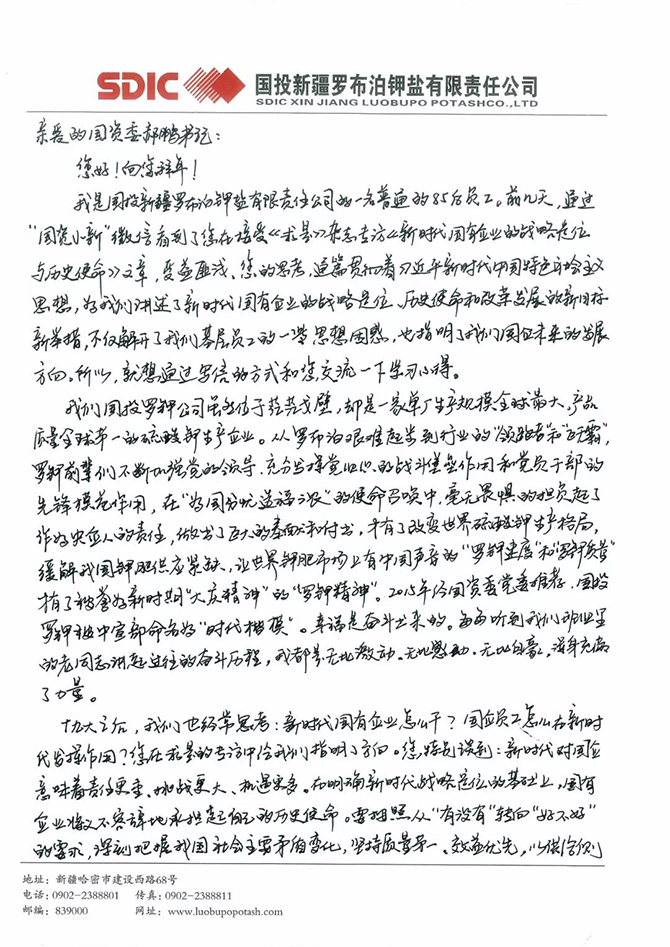 SDIC 国投新疆罗布泊钾盐有限责任公司
SDIC XIN JIANG LUOBUPO POTASHCO.,LTD
亲爱的国资委郝鹏书记：
您好！向您拜年！
我是国投新疆罗布泊钾盐有限责任公司的一名普通的85后员工。前几天，通过
“国资小新”微信看到了您在接受《求是》杂志专访《新时代国有企业的战略定位
与历史使命》文章，受益匪浅。您的思考，通篇贯彻着习近平新时代中国特色社会主义
思想，为我们讲述了新时代国有企业的战略定位、历史使命和改革发展的新目标
新举措，不仅解开了我们基层员工的一些思想困惑，也指明了我们国企未来的发展
方向。所以，就想通过写信的方式和您交流一下学习心得。
我们国投罗钾公司虽然位于茫茫戈壁，却是一家单厂生产规模全球最大、产品
质量全球第一的硫酸钾生产企业。从罗布泊艰难起步到行业的“领跑者”和
罗钾前辈们不断加强党的领导，充分发挥党组织的战斗堡垒作用和党员干部的
先锋模范作用，在“为国分忧造福三农”的使命召唤中，毫无畏惧的担负起了
作为央企人的责任，做出了巨大的奉献和付出，才有了改变世界硫酸钾生产格局，
缓解我国钾肥供应紧缺，让世界钾肥市场上有中国声音的“罗钾速度”和“罗钾质量”
拥有了被誉为新时期“大庆精神”的“罗钾精神”。2015年经国资委党委推荐，国投
罗钾被中宣部命名为“时代楷模”。幸福是奋斗出来的。每每听到我们
的老同志讲起过往的奋斗历程，我都是无比激动、无比感动、无比自豪，浑身充满
了力量。
十九大之后，我们也经常思考：新时代国有企业怎么干？国企员工怎么在新时
代发挥作用？您在求是的专访中给我们指明了方向。您特别谈到：新时代对国企
意味着责任更重、挑战更大、机遇更多。在明确新时代战略定位的基础上，国有
企业将义不容辞地承担起自己的历史使命。要按照从“有没有”转向“好不好”
的要求，深刻把握我国社会主要矛盾变化，坚持质量第一、效益优先，以供给侧
地址：新疆哈密市建设西路68号
电话：0902-2388801 传真：0902-2388811
邮编：839000 网址：www.luobupopotash.com